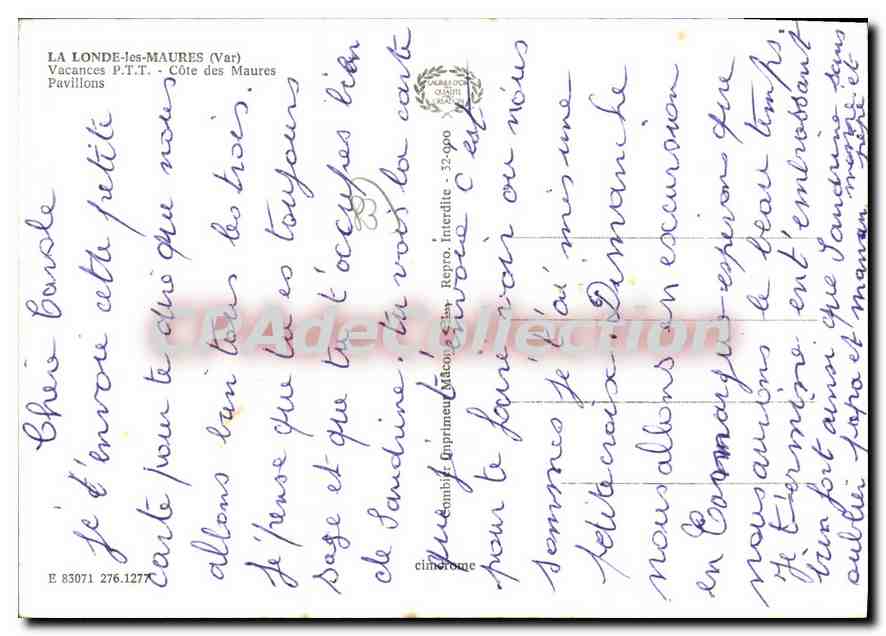 LA LONDE-les-MAURES (Var)
Vacances P.T.T. - Côte des Maures
Pavillons
Chère Carole
je t'envoie cette petite
carte pour te dire que nous
allons bien tous les trois.
Je pense que tu es toujours
sage et que tu t'occupes bien
de Sandrine. tu vois la carte
que je t'envoie c'est
pour te faire voir ou nous
sommes je t'ai mis une
petite croix. Dimanche
nous allons en excursion
en Camargue espérons que
nous aurions le beau temps.
Je termine en t'embrassant
bien fort ainsi que Sandrine sans
oublier papa et maman mémé et
pépé
SALON D'OR
QUALITE
CREATION
Combier Imprimeur Mâcon Repro. Interdite - 32-090
cimcrome
E 83071 276.1277
CPAdeCollection